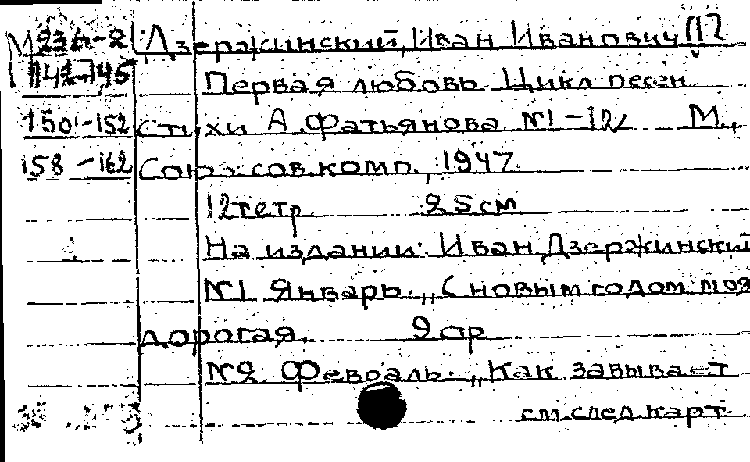 М 236-2 Дзержинский, Иван Иванович
142-145 Первая любовь. Цикл песен
150-152 стихи А. Фатьянова №1-12 М.,
158-162 Союз сов. комп., 1947
12 тетр. 25 см
На издании: Иван Дзержинский
№1 Январь. „С новым годом моя
дорогая. 9 стр
№2 Февраль. „Как завывает
см. след. карт